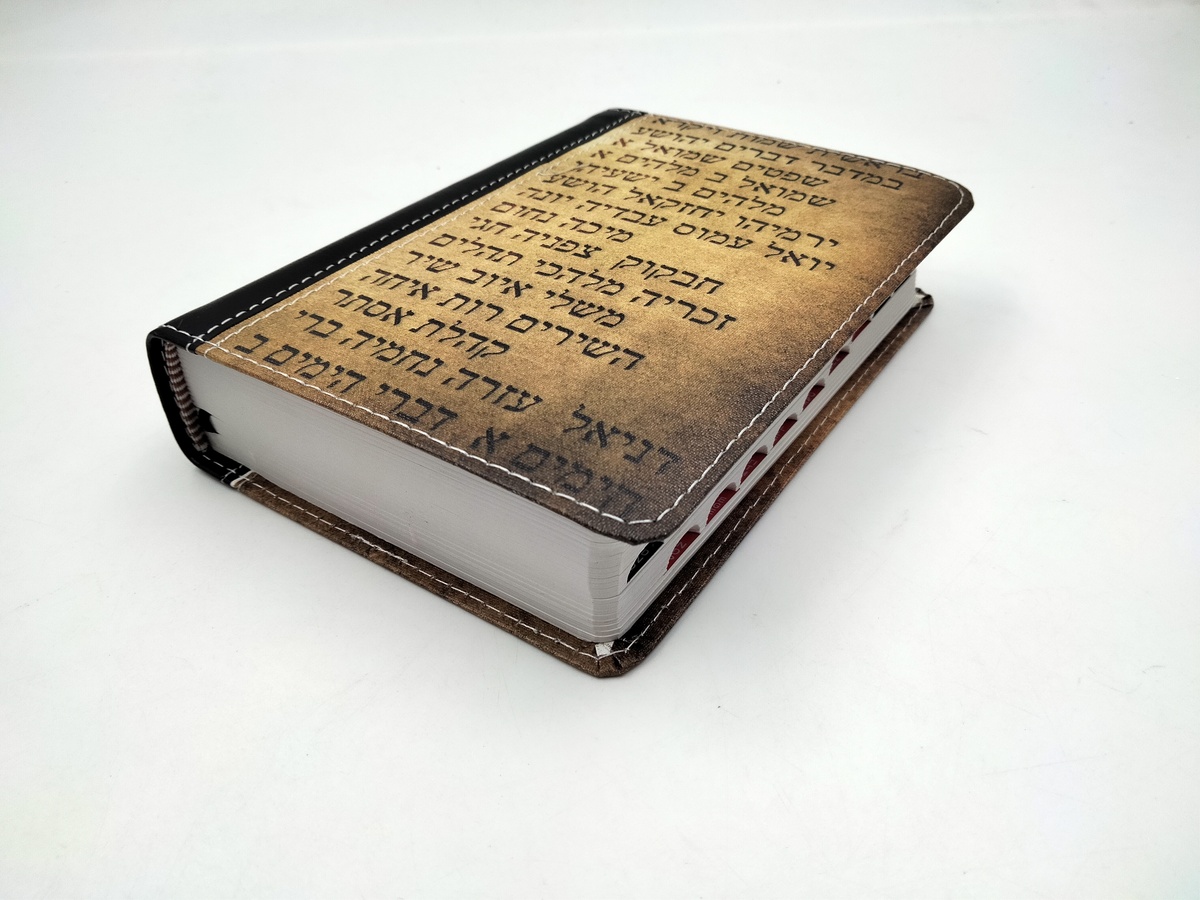 בראשית שמות ויקרא
במדבר דברים יהושע
שפטים שמואל א
שמואל ב מלהים א
מלהים ב ישעיהו
ירמיהו יחזקאל הושע
יואל עמוס עבדיה יונה
מיכה נחום
חבקוק צפניה חגי
זכריה מלדכי תהלים
משלי איוב שיר
השירים רות איחה
קהלת אסתר
דניאל עזרה נחמיה ברי
הימים א דברי הימים ב